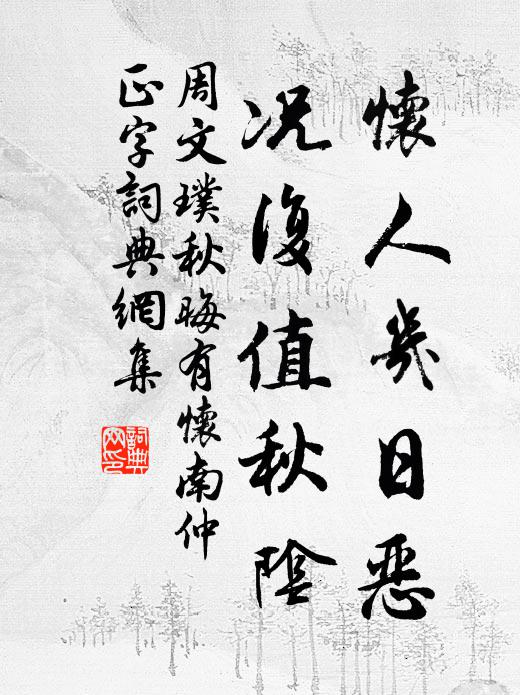 懷人幾日惡
况復值秋陰
周文璞秋晦有懷南仲
正字詞典網集
詞典
网印